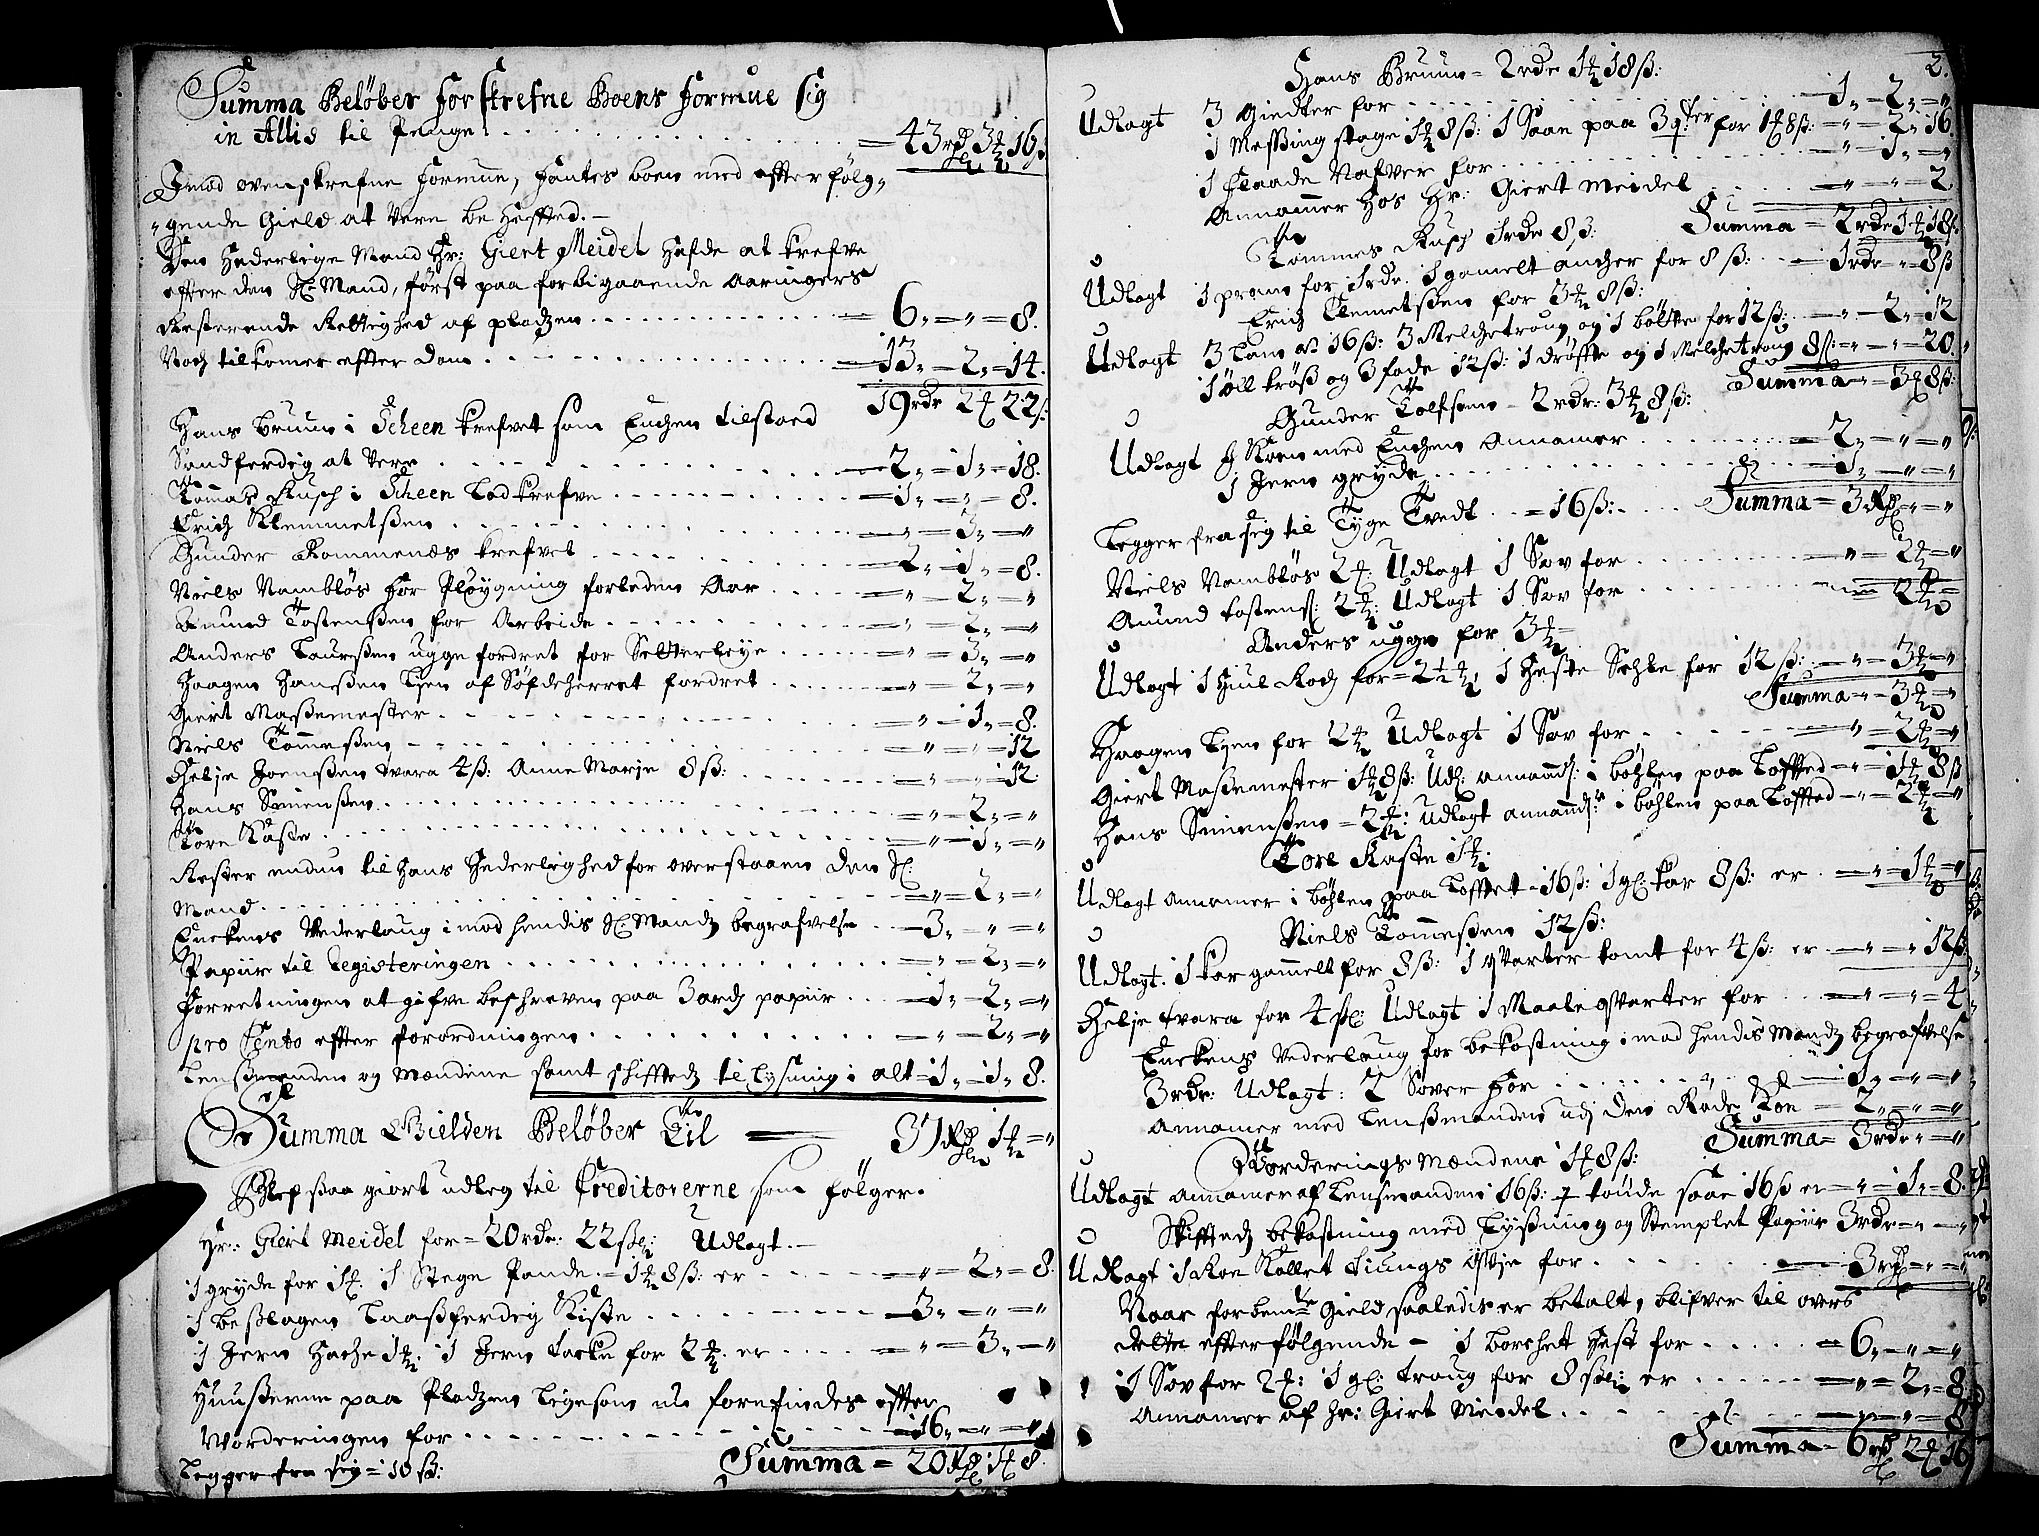 Summa Beløber forskrefne Boens formue sig
in Allis til Penge = 43 rdr 3 ₰ 16 ß
Imod ovenskrefne formue, fantes boen med effterfølg-
gende Gield at Vere be hefftet.
Den Hæderlige Mand Hr: Giert Meidel hafde at krefve
efter den Sl: Mand, først paa forbigaaende Aaringers
Resterende Rettighed af pladzen = 6 = " = 8.
Noch tilkomer effter dom = 13 = 2 = 14.
19 rdr 2 ₰ 22 ß
Hans Bruun i Scheen krefvet som Enchen tilstoed
Sandferdig at Vere = 2 = 1 = 18.
Tommas Rusch i Scheen Lod krefve = 1 = " = 8.
Erich Klemmetsßen = " = 3 = "
Gunder Rommenæs krefvet = 2 = 1 = 8.
Niels Namløs for Pløygning forleden Aar = " = 2 = "
Amund Tostensßen for Arbeide = " = 2 = "
Anders Laursßen ugge fordret for Setterleye = " = 3 = "
Haagen Hansßen Tyen af Søfdeherret fordret = " = 2 = "
Giert Maßemester = " = 1 = 8.
Niels Tommeßen = " = " = 12
Helje Joensßen tvara 4 ß: Anne Marje 8 ß: = " = " = 12.
Hans Simensßen = " = 2 = "
Tore Kaste = " = 1 = "
Rester endnu til Hans Hederlighed for overstaaen den Sl:
Mand = " = 2 = "
Enckens Vederlaug imod hendis Sl: Mandz begrafvelse = 3 = " = "
Papiir til Registeringen = " = 2 = "
Forretningen at gifve beschreven paa 3 ardz papiir = 1 = 2 = "
pro Cento effter forordningen = " = 2 = "
Lensßmanden og Mændene samt schifftedz til Lysning i alt = 1 = 1 = 8.
Summa Gielden Beløber Til = 37 rdr 1 ₰ "
Blef saa giort udleg til Creditorerne som følger.
Hr: Giert Meidel for = 20 rdr: 22 ß: Udlagt.
1 gryde for 1 ₰. 1 Stege Pande = 1 ₰ 8 ß: er = " = 2 = 8.
1 beßlagen Laasßferdig Kiste = 3 = " = "
1 Jern Hache 1 ₰: 1 Jern tacke for 2 ₰: er = " = 3 = "
Huußerne paa Pladzen Ligesom nu forefindes effter
Worderingen for = 16 = " = "
Legger fra sig = 10 ß: Summa = 20 rdr 1 ₰ 8.
2.
Hans Bruun = 2 rdr 1 ₰ 18 ß:
Udlagt 3 Giedter for = 1 = 2 = "
1 Messing stage 1 ₰ 8 ß: 1 Saan paa 3 qter for 1 ₰ 8 ß: = " = 2 = 16
1 Flaade Nafver for = " = 1 = "
Annammer Hos Hr: Giert Meidel = " = " = 2
Summa = 2 rdr 1 ₰ 18 ß
Tommes Rusch 1 rdr 8 ß:
Udlagt 1 pram for 1 rdr. 1 gamelt ancher for 8 ß: = 1 rdr = " 8 ß
Erich Clemetsßen for 3 ₰ 8 ß:
Udlagt 3 Lam a 16 ß: 3 Melchetroug og 1 bøtte for 12 ß: = " = 2 = 12
1 øll krøß og 3 fade 12 ß: 1 drøffte og 1 Melchetroug 8 ß: = " = " = 20.
Summa = " = 3 ₰ 8 ß:
Gunder Tolfsen = 2 rdr: 3 ₰ 8 ß:
Udlagt 1 Koe med Enchen Annamer = 2 = " = "
1 Jern gryde = 1 = " = "
Summa = 3 rdr = " = "
Legger fra sig til Tyge Tvedt = 16 ß:
Niels Namløs 2 ₰: Udlagt 1 Sov for = " = 2 ₰ = "
Amund tostensß: 2 ₰: Udlagt 1 Sov for = 2 ₰ =
Anders ugge for 3 ₰
Udlagt 1 Hiul Roch for = 2 ½ ₰: 1 Heste Sehle for 12 ß: = " = 3 ₰ = "
Summa = " = 3 ₰ = "
Haagen Tyen for 2 ₰ Udlagt 1 Sov for = " = 2 ₰ = "
Giert Maßemester 1 ₰ 8 ß: Udl: annamd: i bøhlen paa Lofftet = " = 1 ₰ 8 ß
Hans Simensßen = 2 ₰: Udlagt annamd: i bøhlen paa Lofftet = " = 2 ₰ = "
Tore Kaste 1 ₰:
Udlagt Annamer i bøhlen paa Lofftet = 16 ß: 1 gl: kar 8 ß: er = " = 1 ₰ = "
Niels Tommeßen 12 ß:
Udlagt. 1 kar gammelt for 8 ß: 1 qvarter tomt for 4 ß: er = " = " 12 ß
Helje tvara for 4 ß: Udlagt 1 Maale qvarter for = " = " = 4
Enckens Vederlaug for bekostning imod hendis Mandz begrafvelse
3 rdr: Udlagt: 2 Sover for = 1 = " = "
Annamer med Lensßmanden udj den Røde Koe = 2 = " = "
Summa = 3 rdr " = "
Vorderings Mændene 1 ₰ 8 ß:
Udlagt Annamer af Lensmanden 16 ß: 7 tønde saae 16 ß er = " = 1 = 8.
Skifftedz bekostning med Lysßning og Stemplet Papiir 3 rdr = " = "
Udlagt 1 Koe Kallet Liungs Østje for = 3 rdr = " = "
Naar forbemte Gield saaledis er betalt, blifver til overs
delte effterfølgende = 1 borchet Hest for = 6 = " = "
1 Sov for 2 ₰: 1 gl: troug for 8 ß: er = " = 2 = 8
Annamer af Hr: Giert Meidel = " = " = 8
Summa = 6 rdr 2 ₰ 16